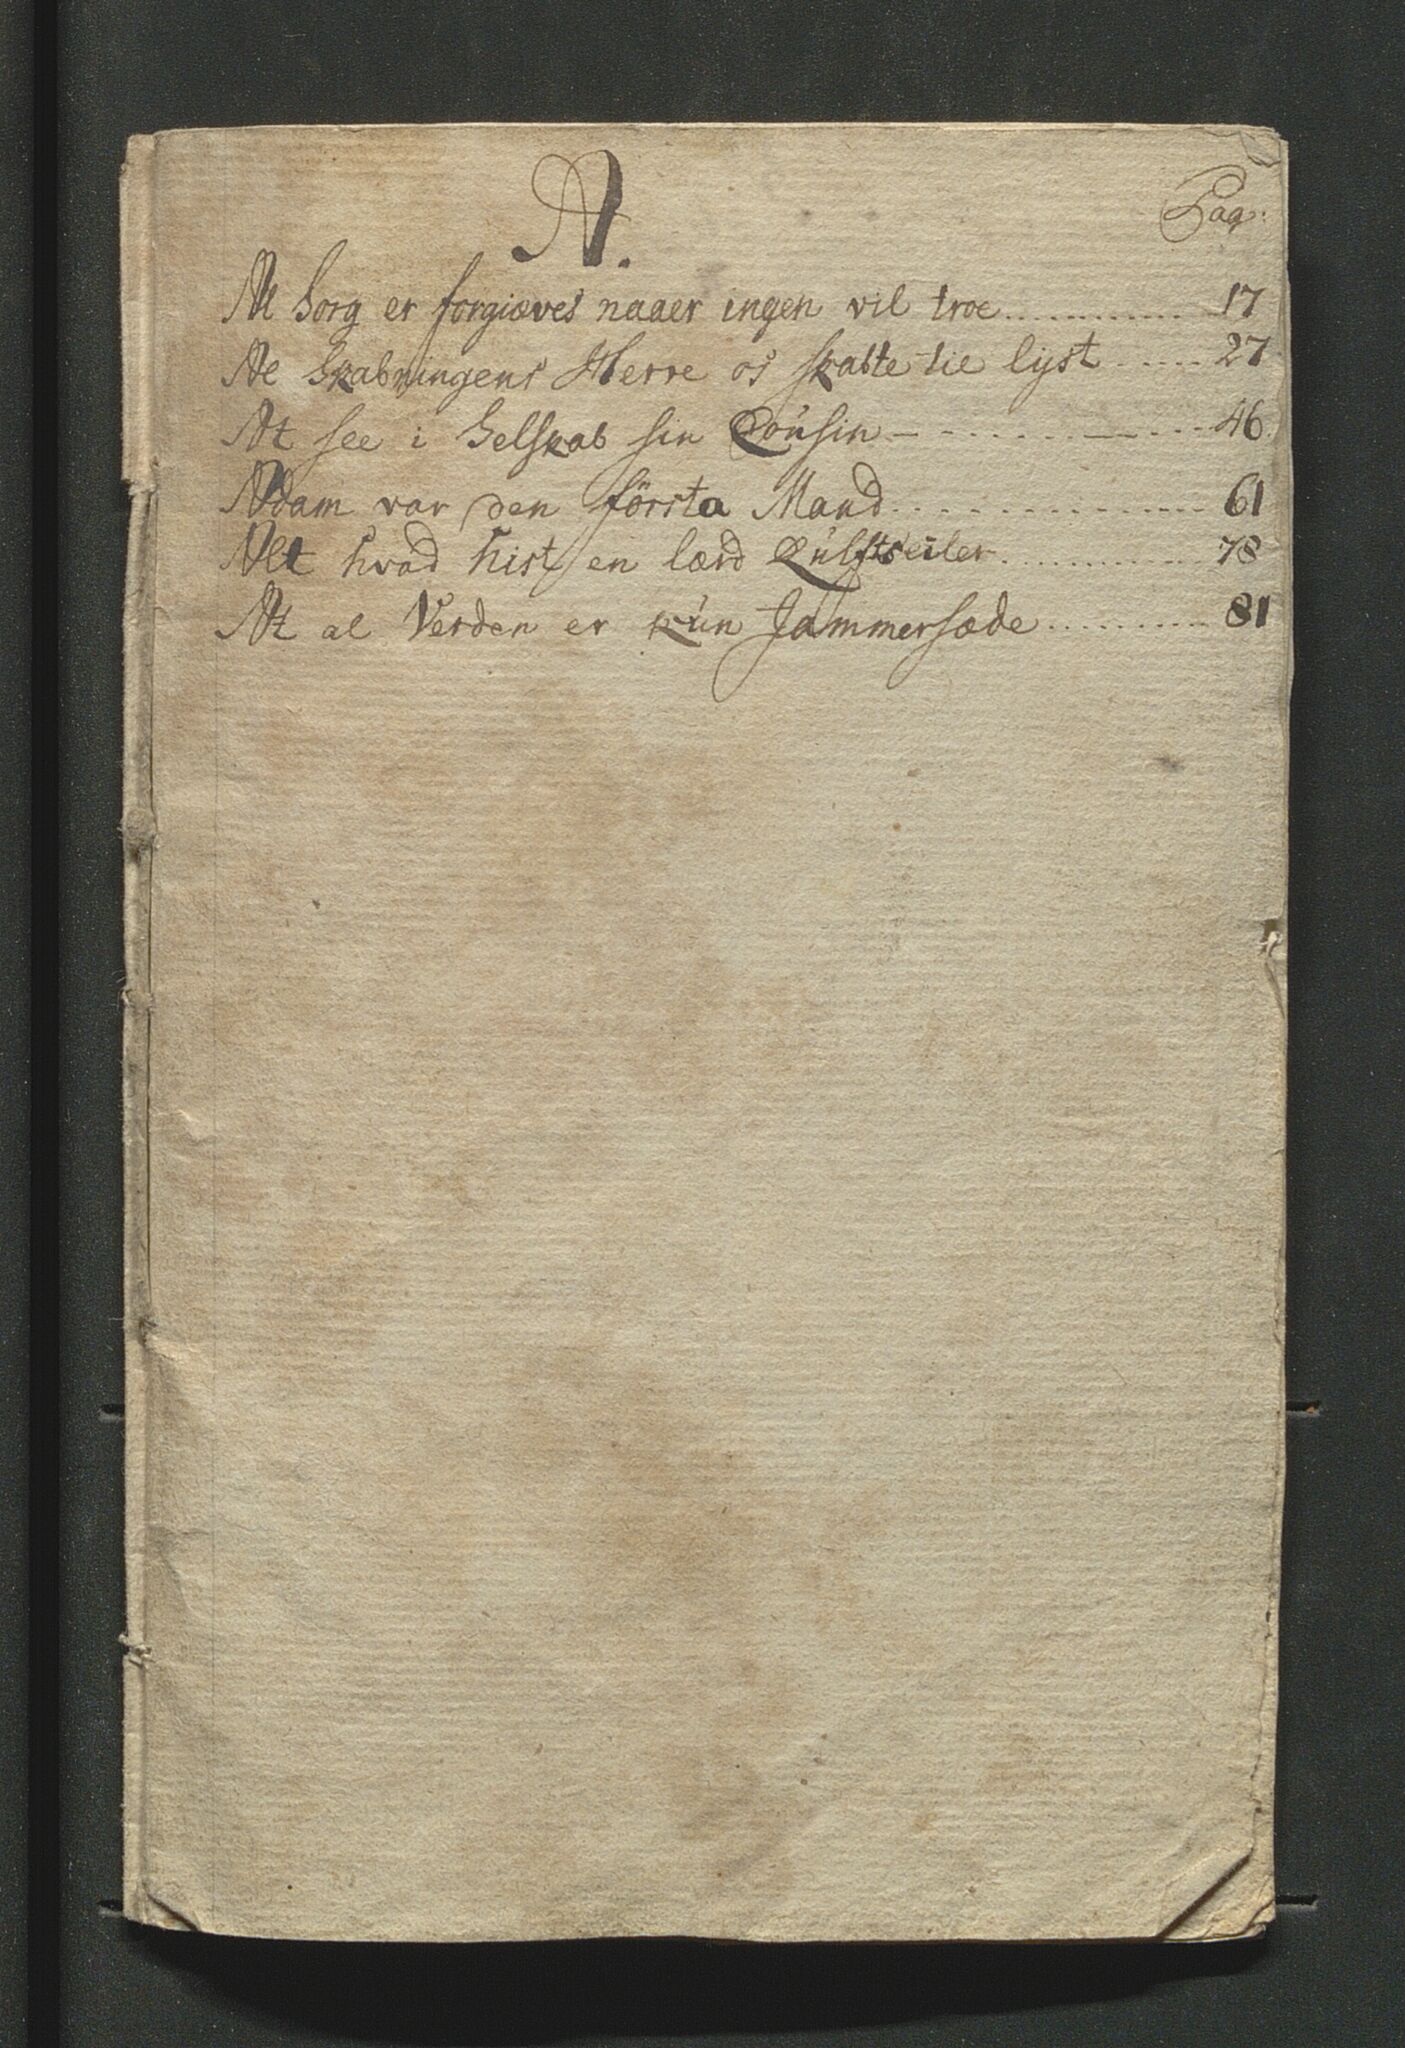 A.
Pag:
Al Sorg er forgiæves naaer ingen vil troe ............ 17
Al Skabningens Herre os skabte til lyst ..... 27
At see i Selskab sin Cousin ........... 46
Adam var den första Mand ............ 61
Alt hvad hist en lærd Luftseiler ............ 78
At al Verden er kun Jammersæde .......... 81